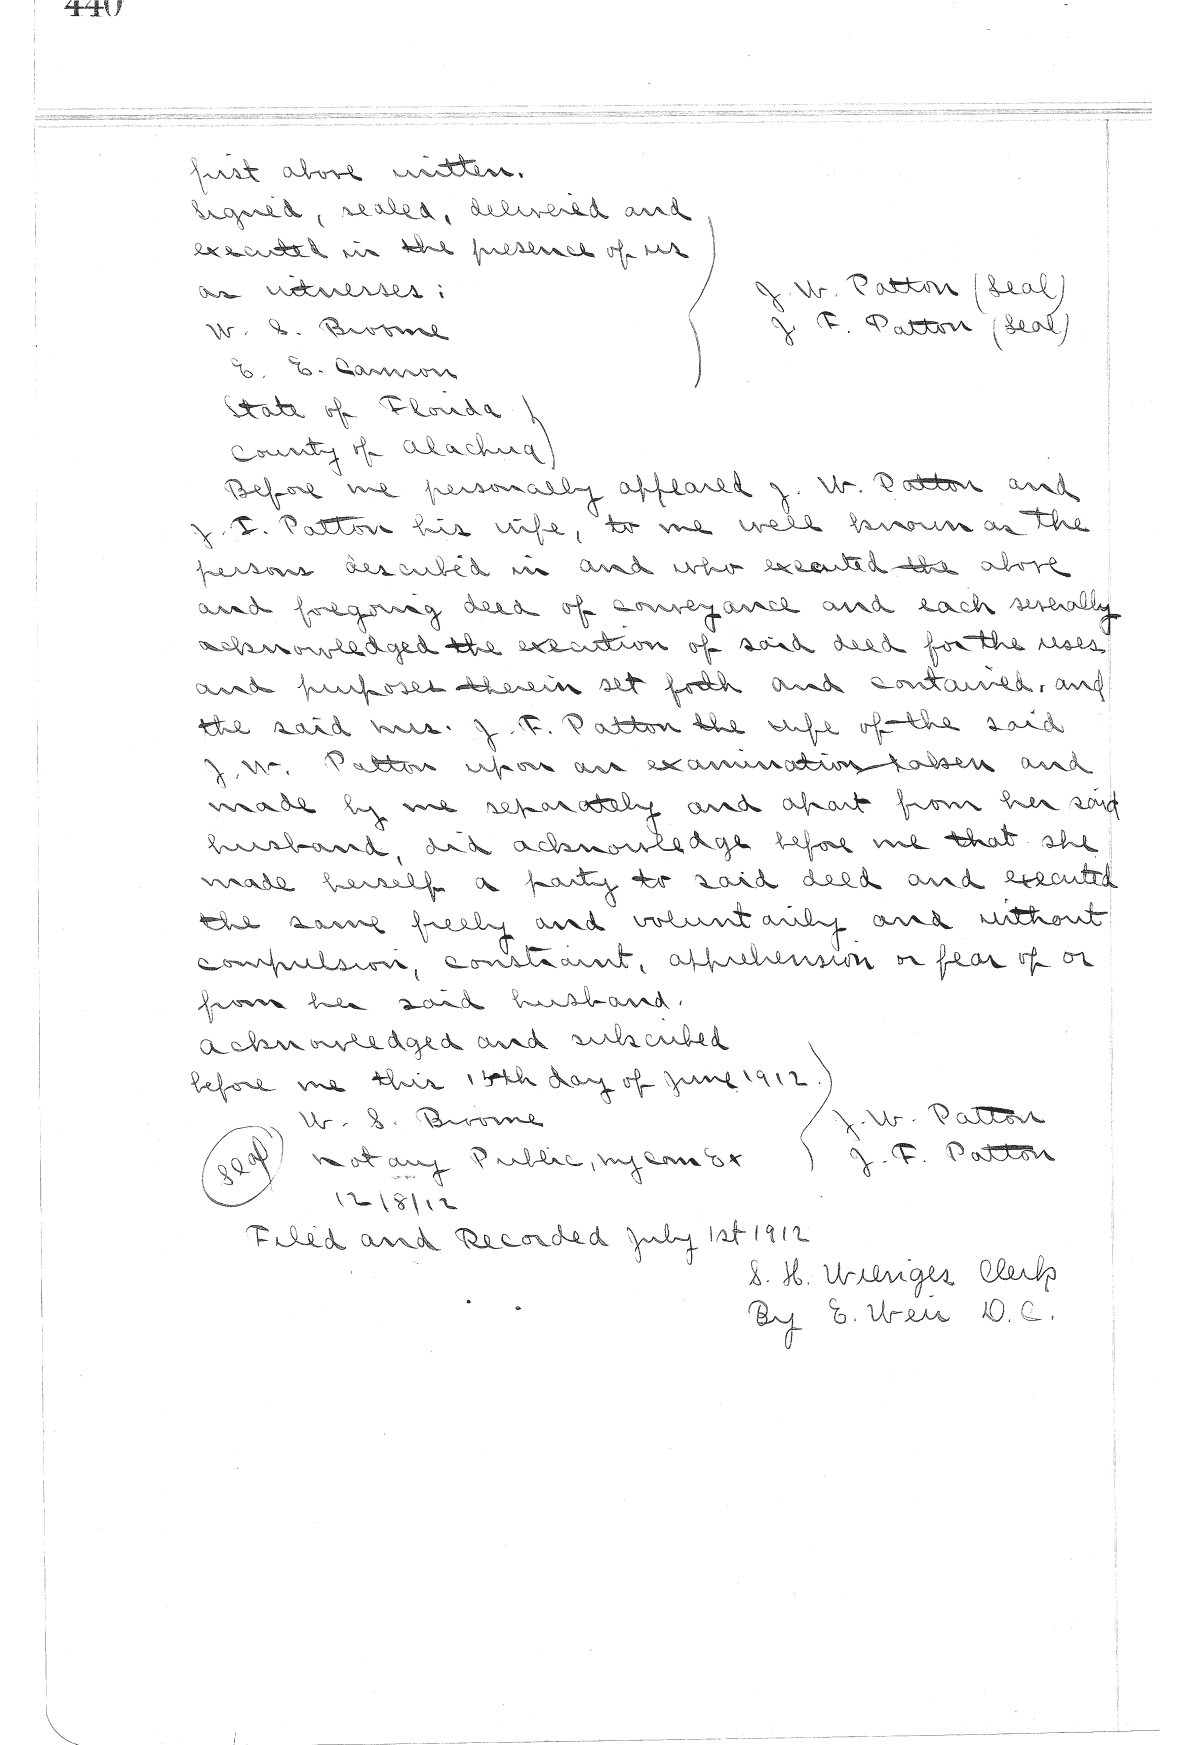 440
first above written.
Signed, sealed, delivered and
executed in the presence of us
as witnesses:
J. W. Patton (Seal)
W. S. Broome
J. F. Patton (Seal)
E. E. Cannon
State of Florida
County of Alachua
Before me personally appeared J. W. Patton and
J. F. Patton his wife, to me well known as the
persons described in and who executed the above
and foregoing deed of conveyance and each severally
acknowledged the execution of said deed for the uses
and purposes therein set forth and contained, and
the said Mrs. J. F. Patton the wife of the said
J. W. Patton upon an examination taken and
made by me separately and apart from her said
husband, did acknowledge before me that she
made herself a party to said deed and executed
the same freely and voluntarily and without
compulsion, constraint, apprehension or fear of or
from her said husband.
Acknowledged and subscribed
before me this 15th day of June 1912.
W. S. Broome
J. W. Patton
Seal
Notary Public, my com Ex
J. F. Patton
12/8/12
Filed and Recorded July 1st 1912
S. H. Wienges Clerk
By E. Weir D.C.